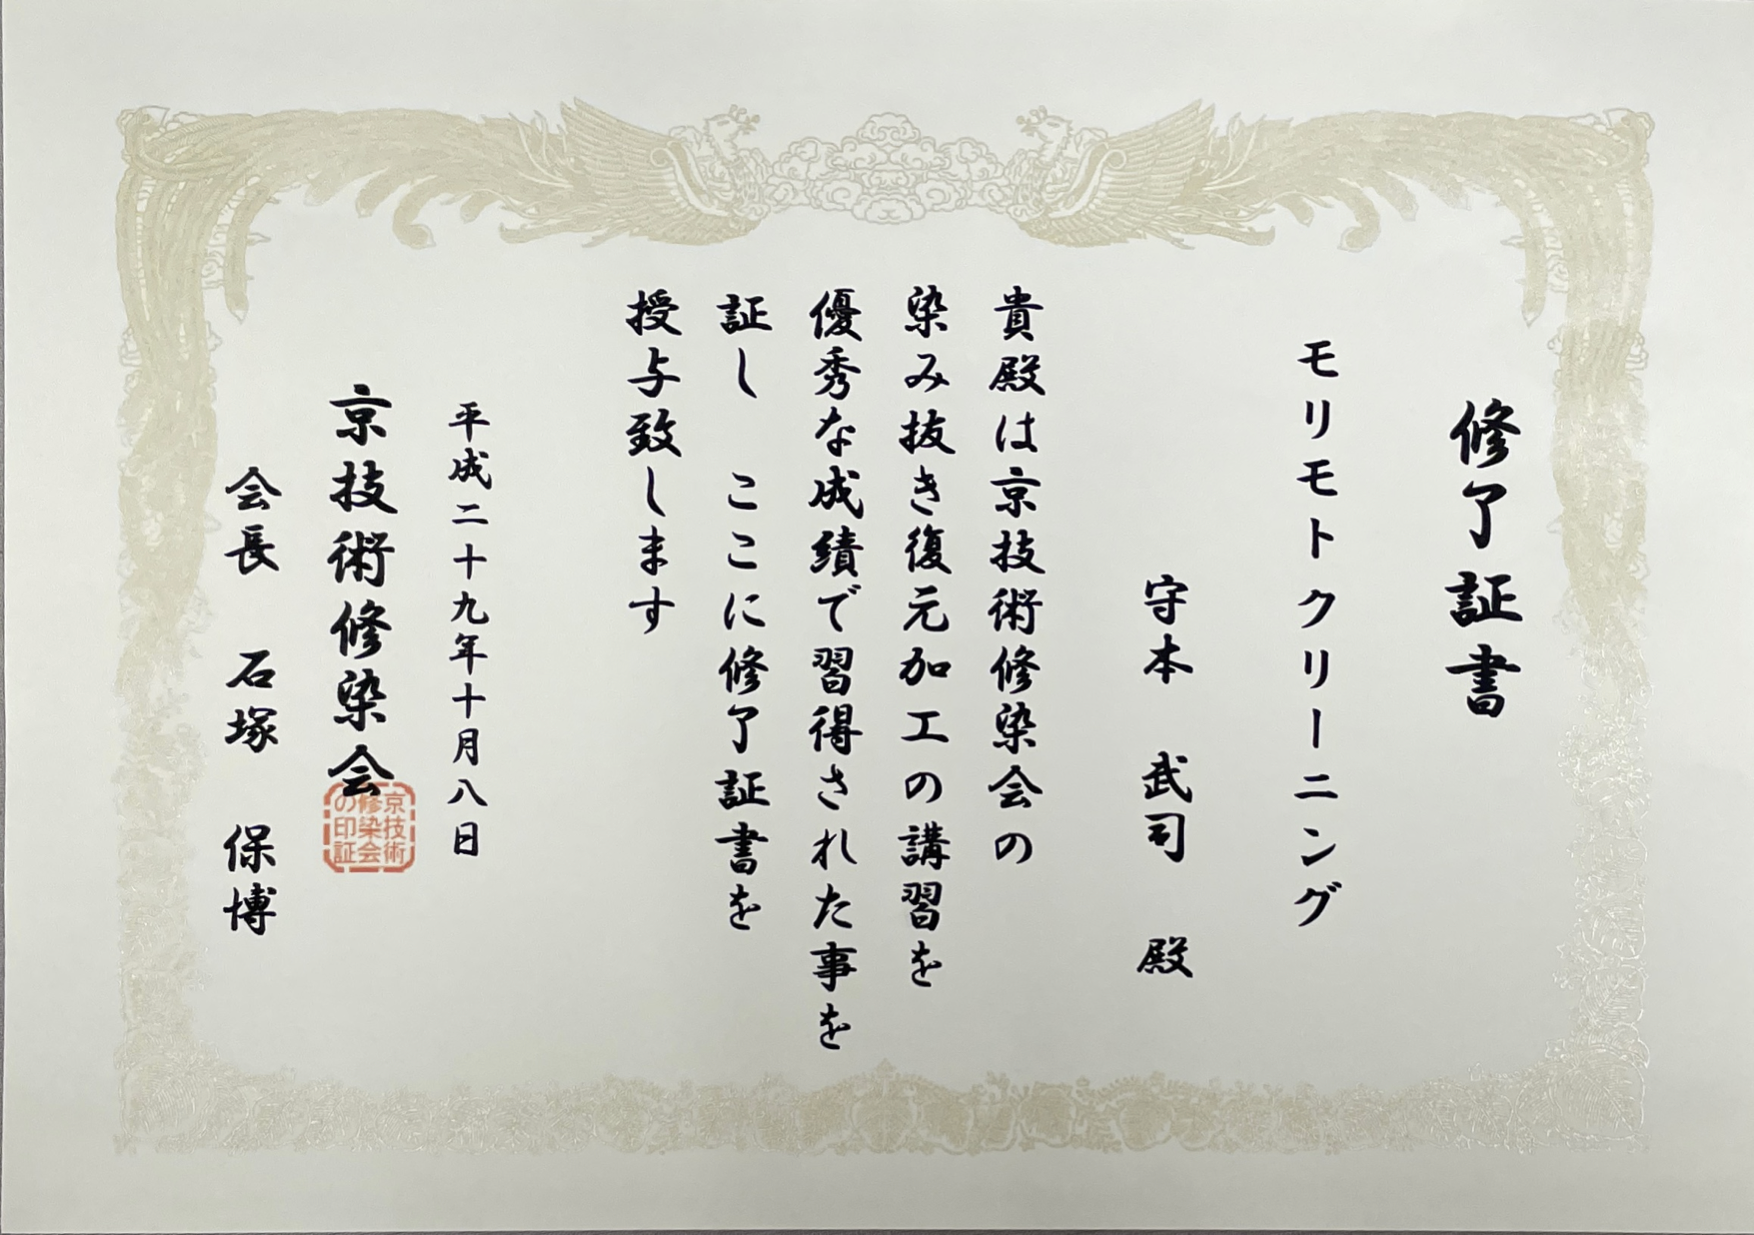 修了証書
モリモトクリーニング
守本 武司 殿
貴殿は京技術修染会の
染み抜き復元加工の講習を
優秀な成績で習得された事を
証し ここに修了証書を
授与致します
平成二十九年十月八日
京技術修染会
会長 石塚 保博
京技術
修染会
の印証